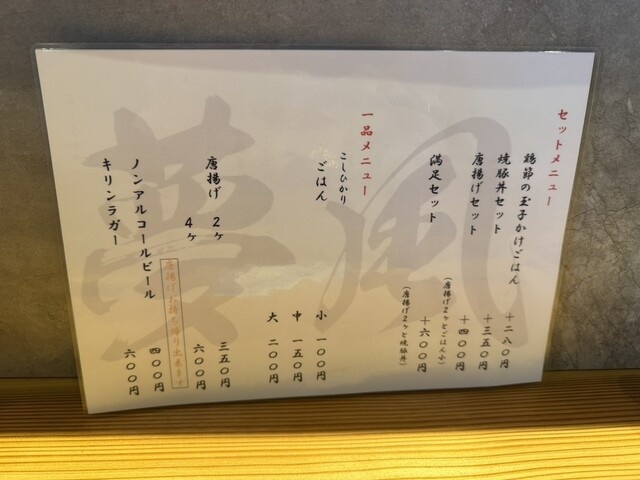 セットメニュー
鶏節の玉子かけごはん
+二八〇円
焼豚丼セット
+三五〇円
唐揚げセット
+四〇〇円
(唐揚げ2ヶとごはん小)
満足セット
+六〇〇円
(唐揚げ2ヶと焼豚丼)
一品メニュー
こしひかり
ごはん
小 一〇〇円
中 一五〇円
大 二〇〇円
唐揚げ 2ヶ
三五〇円
4ヶ
六〇〇円
唐揚げお持ち帰り出来ます
ノンアルコールビール
四〇〇円
キリンラガー
六〇〇円
風
夢